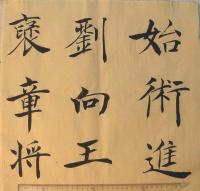 始術進
劉向王
褒章将